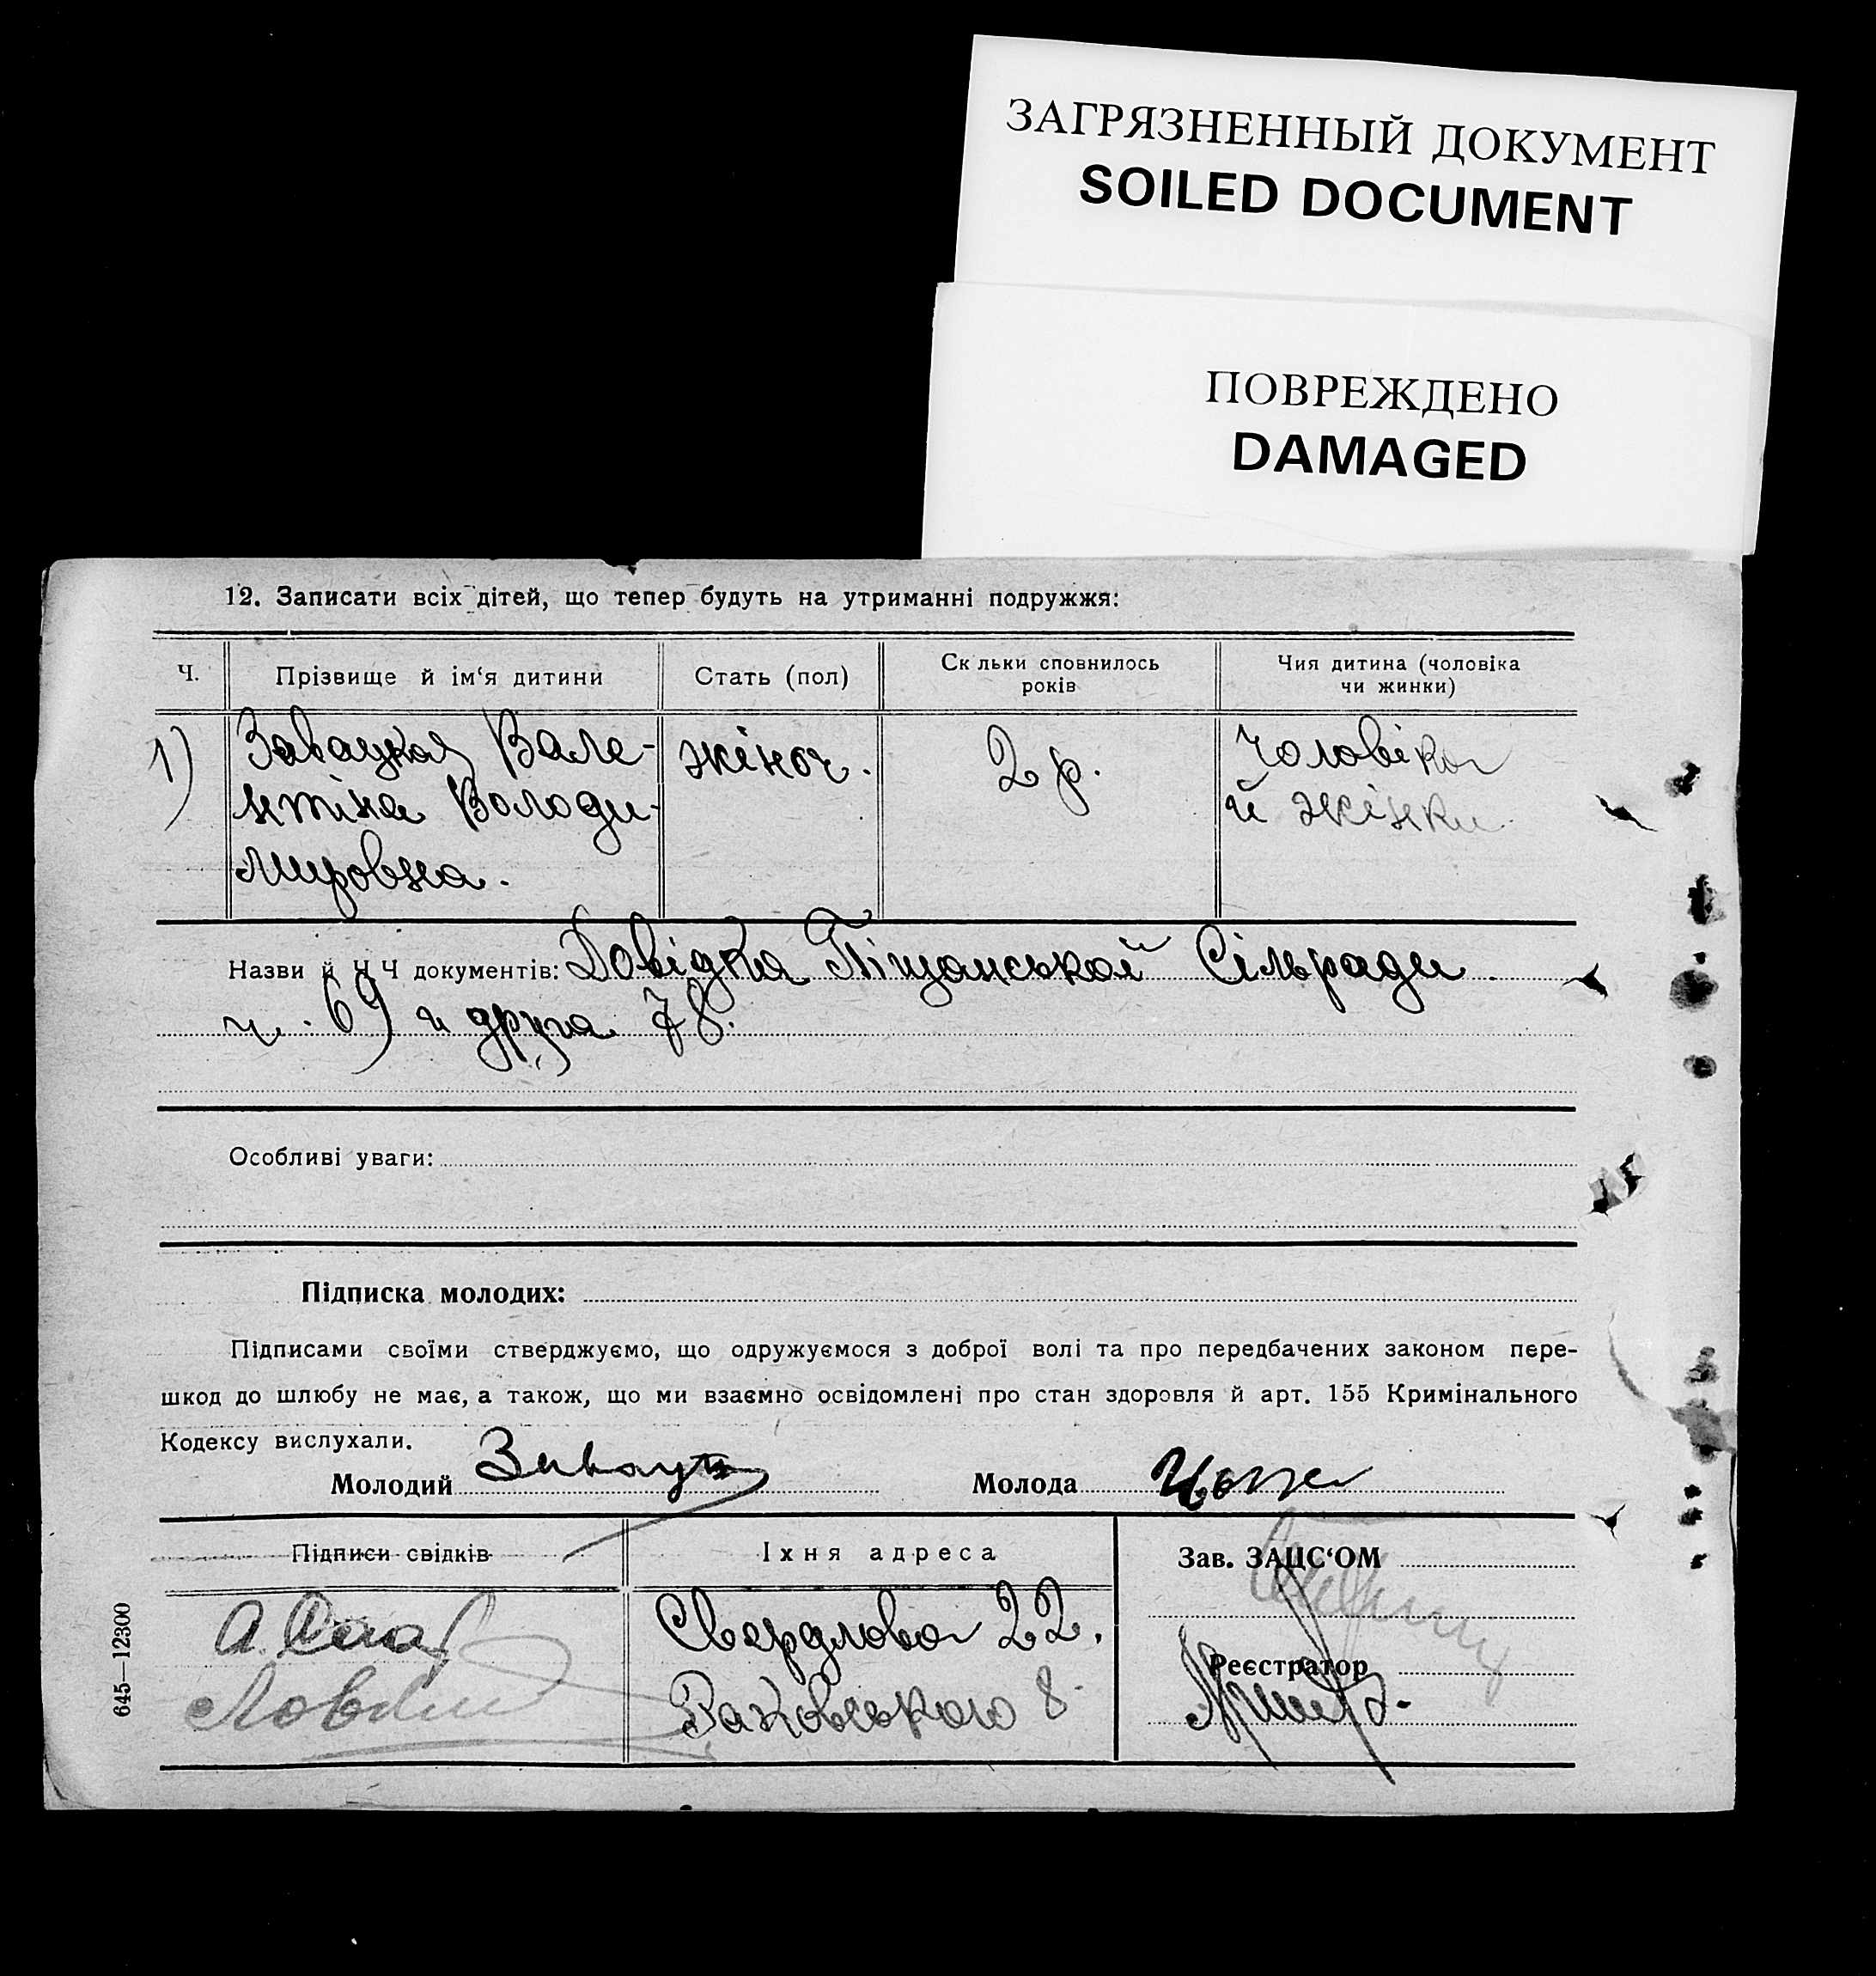 ЗАГРЯЗНЕННЫЙ ДОКУМЕНТ
SOILED DOCUMENT
ПОВРЕЖДЕНО
DAMAGED
12. Записати всіх дітей, що тепер будуть на утриманні подружжя:
Ч.
Прізвище й ім‘я дитини
Стать (пол)
Ск льки сповнилось
років
Чия дитина (чоловіка
чи жинки)
1)
Завацкая Вале-
нтіна Володи-
мировна.
жіноч.
2 р.
Чоловіка
й жінки
Назви й Ч Ч документів: Довідка Піщанської Сільради
ч. 69 и друга 78.
Особливі уваги:
Підписка молодих:
Підписами своїми стверджуємо, що одружуємося з доброї волі та про передбачених законом пере-
шкод до шлюбу не має, а також, що ми взаємно освідомлені про стан здоровля й арт. 155 Кримінального
Кодексу вислухали.
Молодий
Молода
Підписи свідків
Їхня адреса
Зав. ЗАЦС‘ОМ
А.
Свердлова 22.
Раковського 8
Реєстратор
645—12300